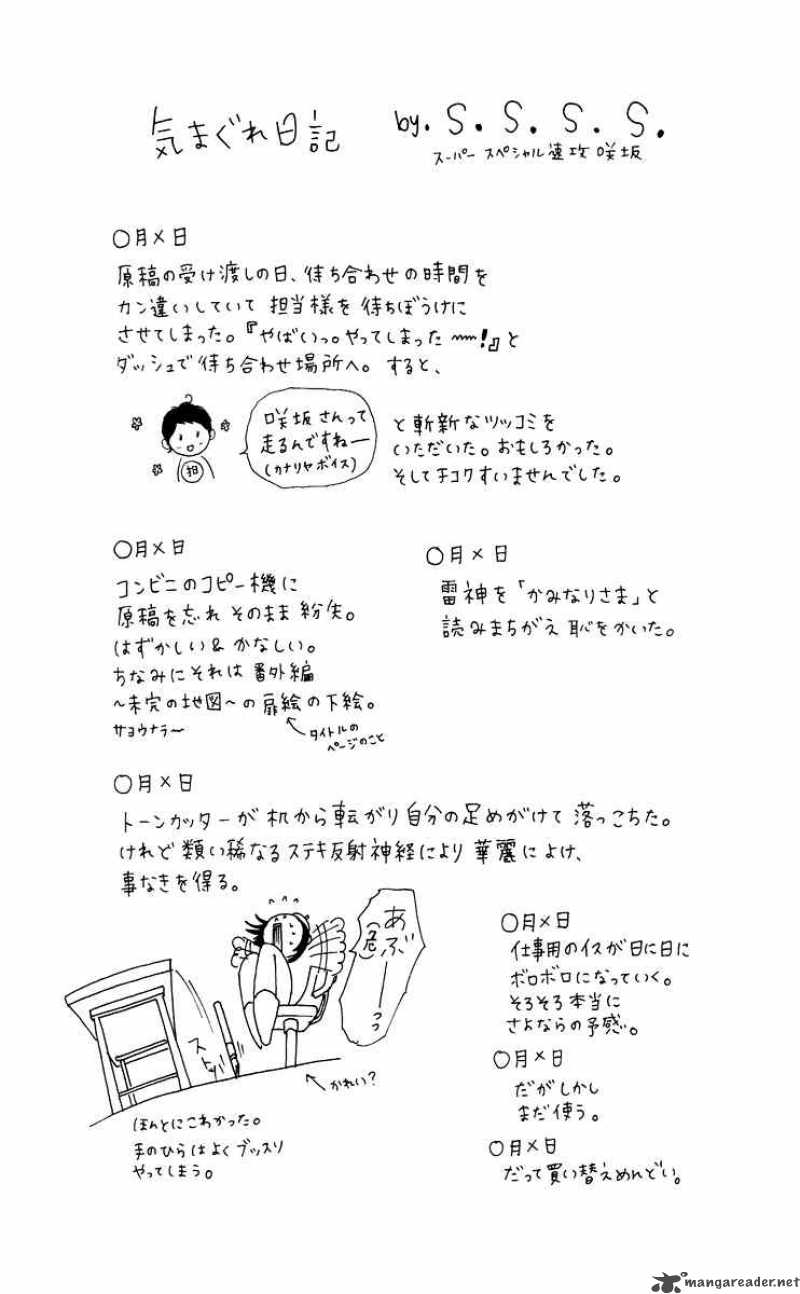 気まぐれ日記
by. S. S. S. S.
スーパー スペシャル 速攻 咲坂
〇月×日
原稿の受け渡しの日、待ち合わせの時間を
カン違いしていて 担当様を 待ちぼうけに
させてしまった。『やばいっ。やってしまった〰!』と
ダッシュで待ち合わせ場所へ。すると、
担
咲坂さんって
走るんですねー
(カナリヤボイス)
と斬新なツッコミを
いただいた。おもしろかった。
そしてチコクすいませんでした。
〇月×日
コンビニのコピー機に
原稿を忘れ そのまま 紛失。
はずかしい&かなしい。
ちなみにそれは 番外編
~未完の地図~の扉絵の下絵。
サヨウナラ~
タイトルの
ページのこと
〇月×日
雷神を「かみなりさま」と
読みまちがえ 恥をかいた。
〇月×日
トーンカッターが 机から転がり自分の足めがけて 落っこちた。
けれど 類い稀なる ステキ反射神経により 華麗によけ、
事なきを得る。
あぶーーっっ
(危)
ストッ
かれい?
ほんとにこわかった。
手のひらはよくブッスリ
やってしまう。
〇月×日
仕事用のイスが日に日に
ボロボロになっていく。
そろそろ本当に
さよならの予感。
〇月×日
だがしかし
まだ使う。
〇月×日
だって買い替えめんどい。
mangareader.net